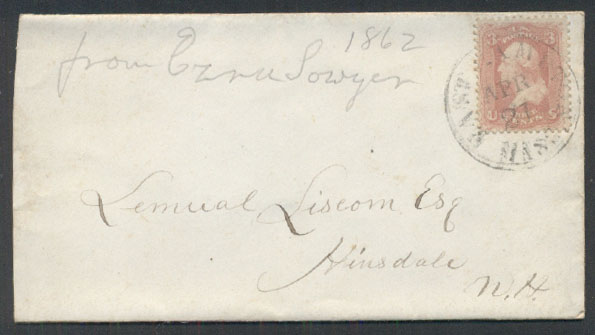 1862
from Ezra Sawyer
APR
27
MASS
Lemual Liscom Esq
Hinsdale
N.H.